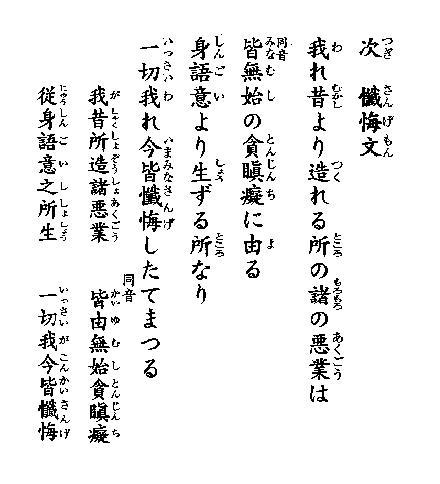 次 懺悔文
我れ昔より造れる所の諸の悪業は
同音
皆無始の貪瞋癡に由る
身語意より生ずる所なり
一切我れ今皆懺悔したてまつる
我昔所造諸悪業
同音
皆由無始貪瞋癡
従身語意之所生
一切我今皆懺悔